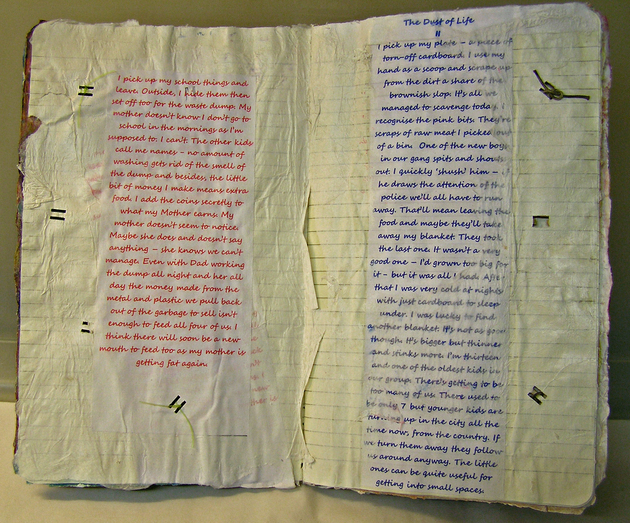 I pick up my school things and
leave. Outside, I hide them then
set off too for the waste dump. My
mother doesn't know I don't go to
school in the mornings as I'm
supposed to. I can't. The other kids
call me names – no amount of
washing gets rid of the smell of
the dump and besides, the little
bit of money I make means extra
food. I add the coins secretly to
what my Mother earns. My
mother doesn't seem to notice.
Maybe she does and doesn't say
anything – she knows we can't
manage. Even with Dad working
the dump all night and her all
day the money made from the
metal and plastic we pull back
out of the garbage to sell isn't
enough to feed all four of us. I
think there will soon be a new
mouth to feed too as my mother is
getting fat again.
The Dust of Life
II
I pick up my place – a piece of
torn-off cardboard. I use my
hand as a scoop and scrape up
from the dirt a share of the
brownish slop. It's all we
managed to scavenge today. I
recognise the pink bits. They're
scraps of raw meat I picked out
of a bin. One of the new boys
in our gang spits and shouts
out. I quickly 'shush' him – if
he draws the attention of the
police we'll all have to run
away. That'll mean leaving the
food and maybe they'll take
away my blanket. They took
the last one. It wasn't a very
good one – I'd grown too big for
it - but it was all I had. After
that I was very cold at nights
with just cardboard to sleep
under. I was lucky to find
another blanket. It's not as good
though. It's bigger but thinner
and stinks more. I'm thirteen
and one of the oldest kids in
our group. There's getting to be
too many of us. There used to
be only 7 but younger kids are
turning up in the city all the
time now, from the country. If
we turn them away they follow
us around anyway. The little
ones can be quite useful for
getting into small spaces.